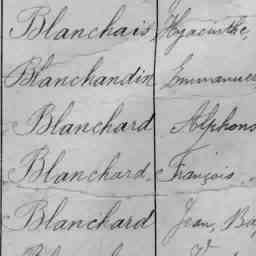 Blanchais, Hyacinthe,
Blanchandin Emmanuel
Blanchard Alphons
Blanchard, François,
Blanchard Jean, Bap